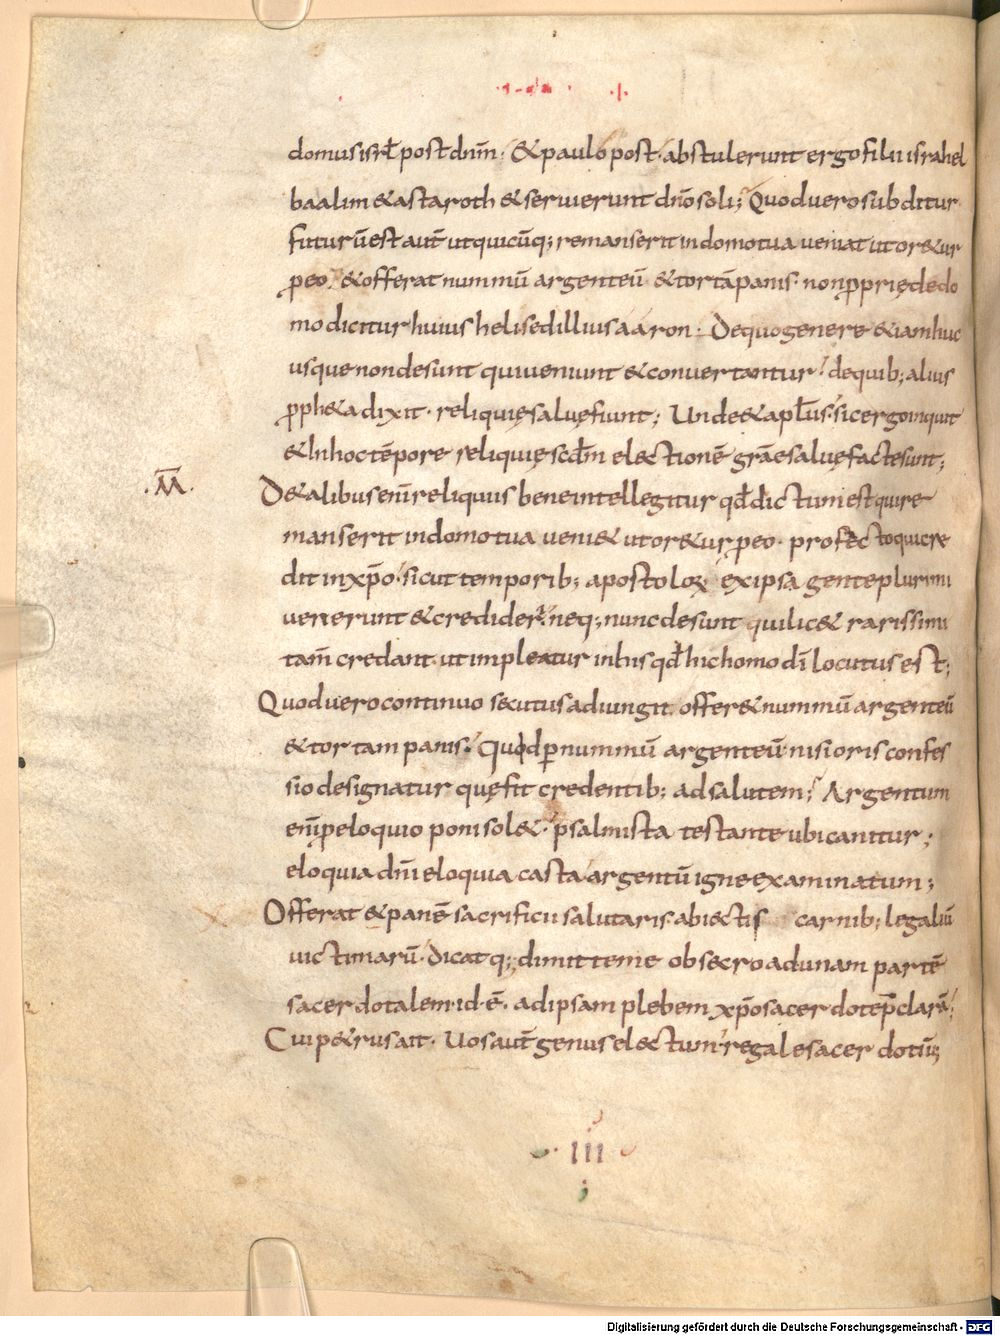 domus isrł post dnm̄. & paulo post. abstulerunt ergo filii israhel
baalim & astaroth & servierunt dnō soli; Quod vero subditur
futurū est autē ut quicūq; remanserit in domo tua veniat ut or&ur
p eo. & offerat nummū argenteū & tortā panis. non ꝓprię dedo
mo dicitur huius heli sed illius aaron. De quo genere & iam huc
usque non desunt qui veniunt & convertantur. de quib; alius
ꝓph&a dixit. reliquię salvę fiunt; Unde & apłus. sic ergo inquit
& In hoc tēpore reliquię scđm electionē grāe salvę facte sunt;
.M̄.
D& alibus enī reliquiis bene intellegitur qđ dictum est qui re
manserit in domo tua veni& ut or&ur ꝓ eo. profecto qui cre
dit in xp̄o. sicut temporib; apostoloꝝ ex ipsa gente plurimi
venerunt & credider̄. neq; nunc desunt qui lic& rarissimi
tam̄ credant. ut impleatur in his qđ hic homo dī locutus est;
Quod vero continuo secutus adiungit offer& nummū argenteū
& tortam panis. Quod p̱ nummū argenteū nisi oris confes
sio designatur quę fit credentib; ad salutem; Argentum
enī p eloquio poni sol&. psalmista testante ubi canitur;
eloquia dnī eloquia casta argentū igne examinatum;
Offerat & panē sacrificii salutaris abiectis carnib; legaliū
victimarū. dicatq; dimitte me obsecro ad unam partē
sacerdotalem. id ē. ad ipsam plebem xp̄o sacerdote p̄clarā;
Cui p&rus ait. Vos autē genus electum regale sacerdotiū;
III
Digitalisierung gefördert durch die Deutsche Forschungsgemeinschaft - DFG